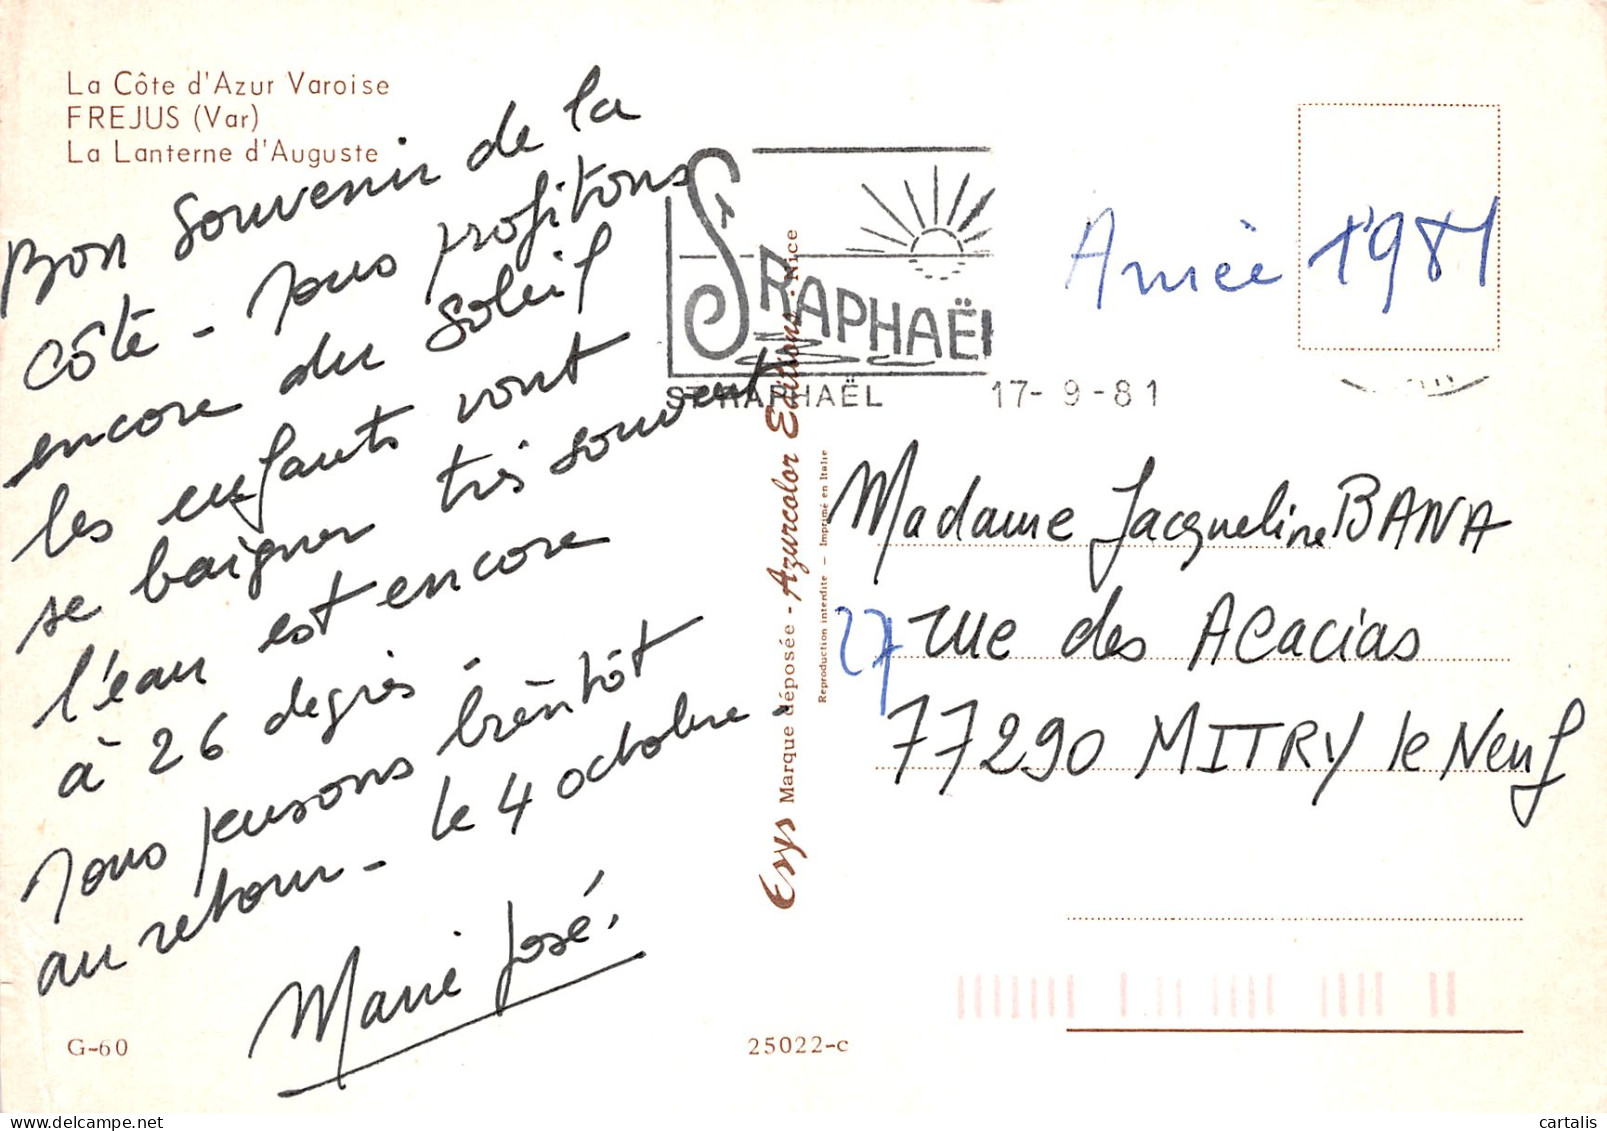 La Côte d'Azur Varoise
FREJUS (Var)
La Lanterne d'Auguste
Bon souvenir de la
côte - nous profitons
encore du soleil
les enfants vont
se baigner très souvent
l'eau est encore
à 26 degrés -
nous pensons bientôt
au retour - le 4 octobre -
Marie José.
G-60
25022-c
Esys Marque déposée - Azurcolor Editions - Nice
Reproduction interdite - Imprimé en Italie
ST RAPHAËL
ST RAPHAËL 17- 9 -81
Année 1981
Madame Jacqueline BANA
27 rue des Acacias
77290 MITRY le Neuf
cartalis